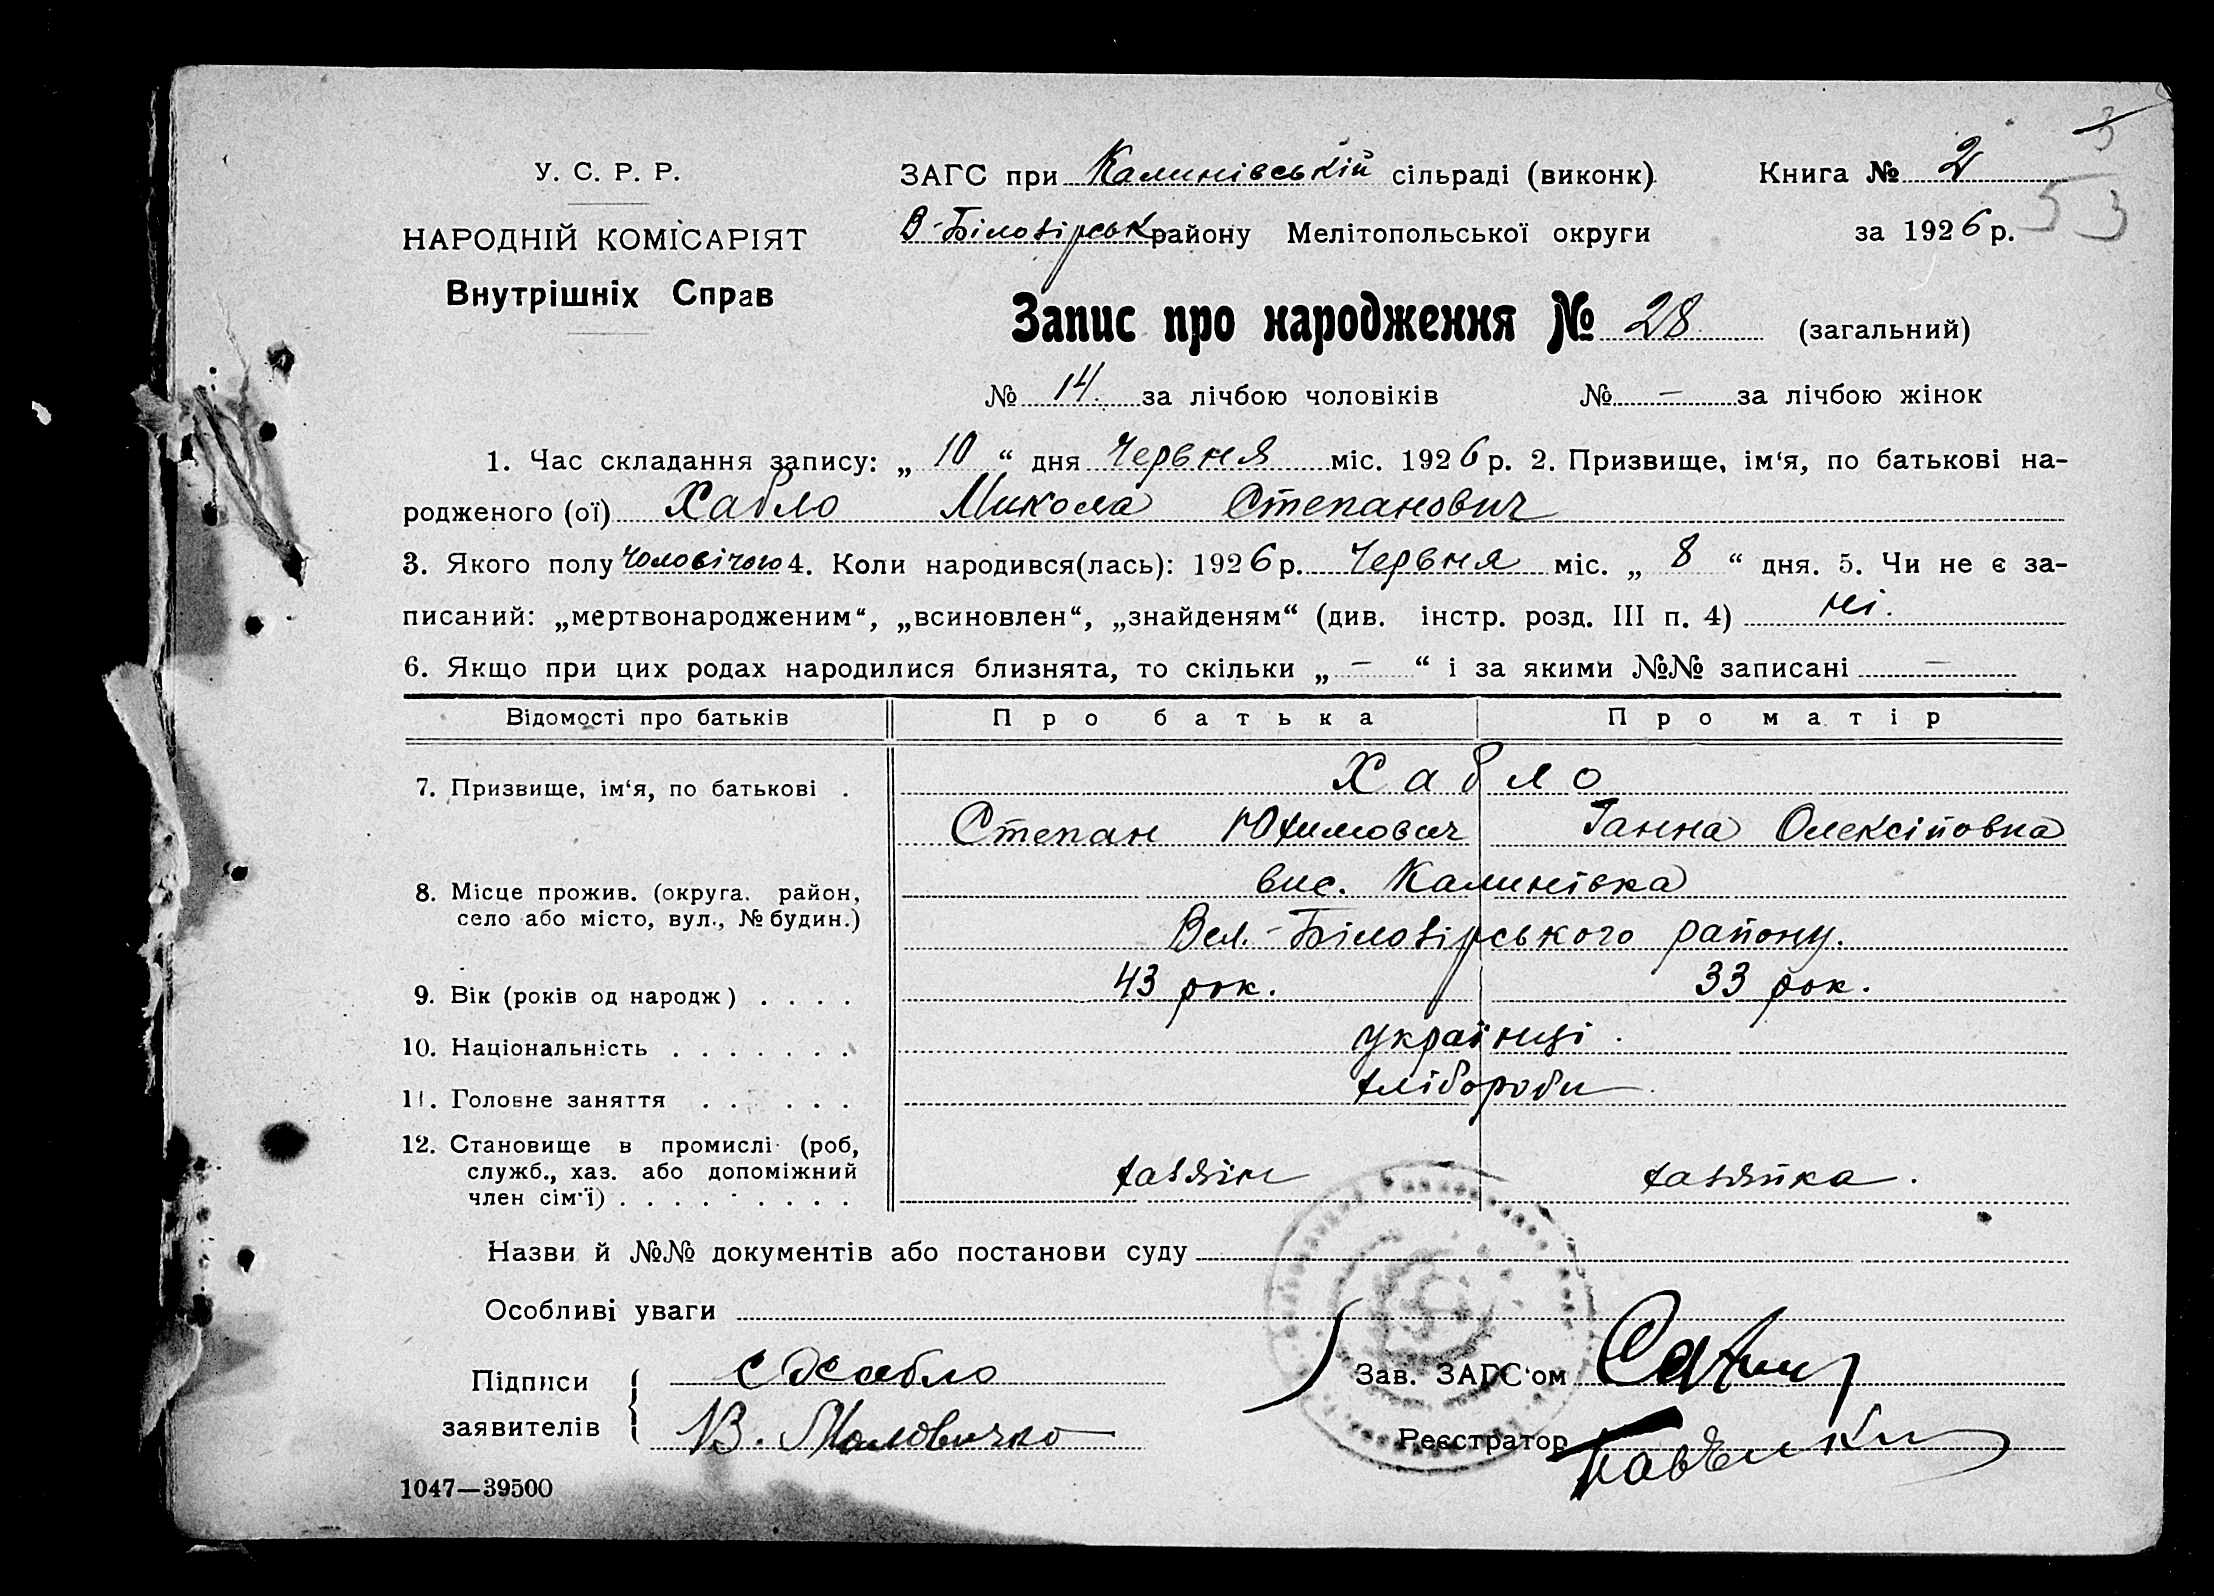 3
53
У. С. Р. Р.
НАРОДНІЙ КОМІСАРІЯТ
Внутрішніх Справ
ЗАГС при Калинівській сільраді (виконк)
Книга № 2
В-Білозірськ району Мелітопольської округи
за 1926 р.
Запис про народження № 28 (загальний)
№ 14. за лічбою чоловіків № – за лічбою жінок
1. Час складання запису: „ 10 “ дня Червня міс. 1926 р. 2. Призвище, ім‘я, по батькові на-
родженого (ої) Хабло Микола Степанович
3. Якого полу чоловічого 4. Коли народився(лась): 1926 р. Червня міс. „ 8 “ дня. 5. Чи не є за-
писаний: „мертвонародженим“, „всиновлен“, „знайденям“ (див. інстр. розд. III п. 4) ні.
6. Якщо при цих родах народилися близнята, то скільки „ – “ і за якими №№ записані –
Відомості про батьків Про батька Про матір
7. Призвище, ім‘я, по батькові . Хабло
Степан Юхимович Ганна Олексіївна
8. Місце прожив. (округа. район, село або місто, вул., № будин.) вис. Калинівка
Вел.-Білозірського району.
9. Вік (років од народж) . . . . 43 рок. 33 рок.
10. Національність . . . . . . . українці.
11. Головне заняття . . . . . . хлібороби
12. Становище в промислі (роб,
служб., хаз. або допоміжний
член сім‘ї) . . . . . . . . хазяїн хазяйка.
Назви й №№ документів або постанови суду
Особливі уваги
Підписи
заявителів
С Хабло
В. Маловичко
Зав. ЗАГС‘ом
Реєстратор
1047—39500